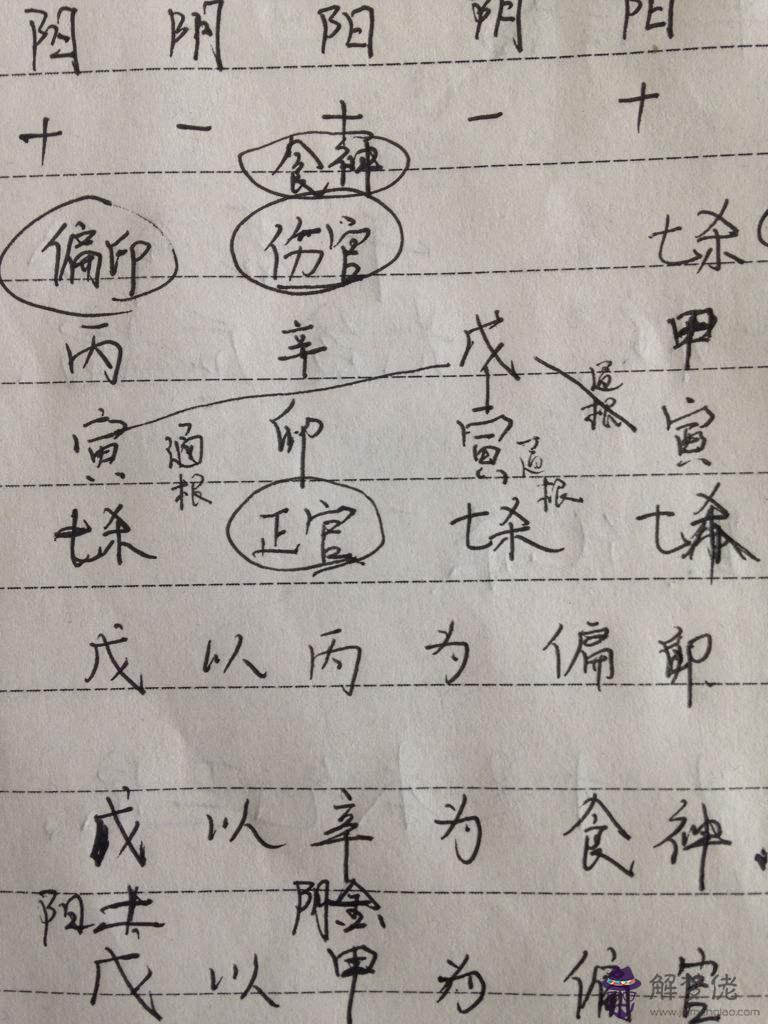 阳 阴 阳 阴 阳
+ - + - +
食神
偏印 伤官 七杀
丙 辛 戊 甲
通根
寅 通根 卯 寅 通根 寅
七杀 正官 七杀 七杀
戊 以 丙 为 偏 印
戊 以 辛 为 食 神.
阳土 阴金
戊 以 甲 为 偏 官
解梦佬
www.jiemenglao.com